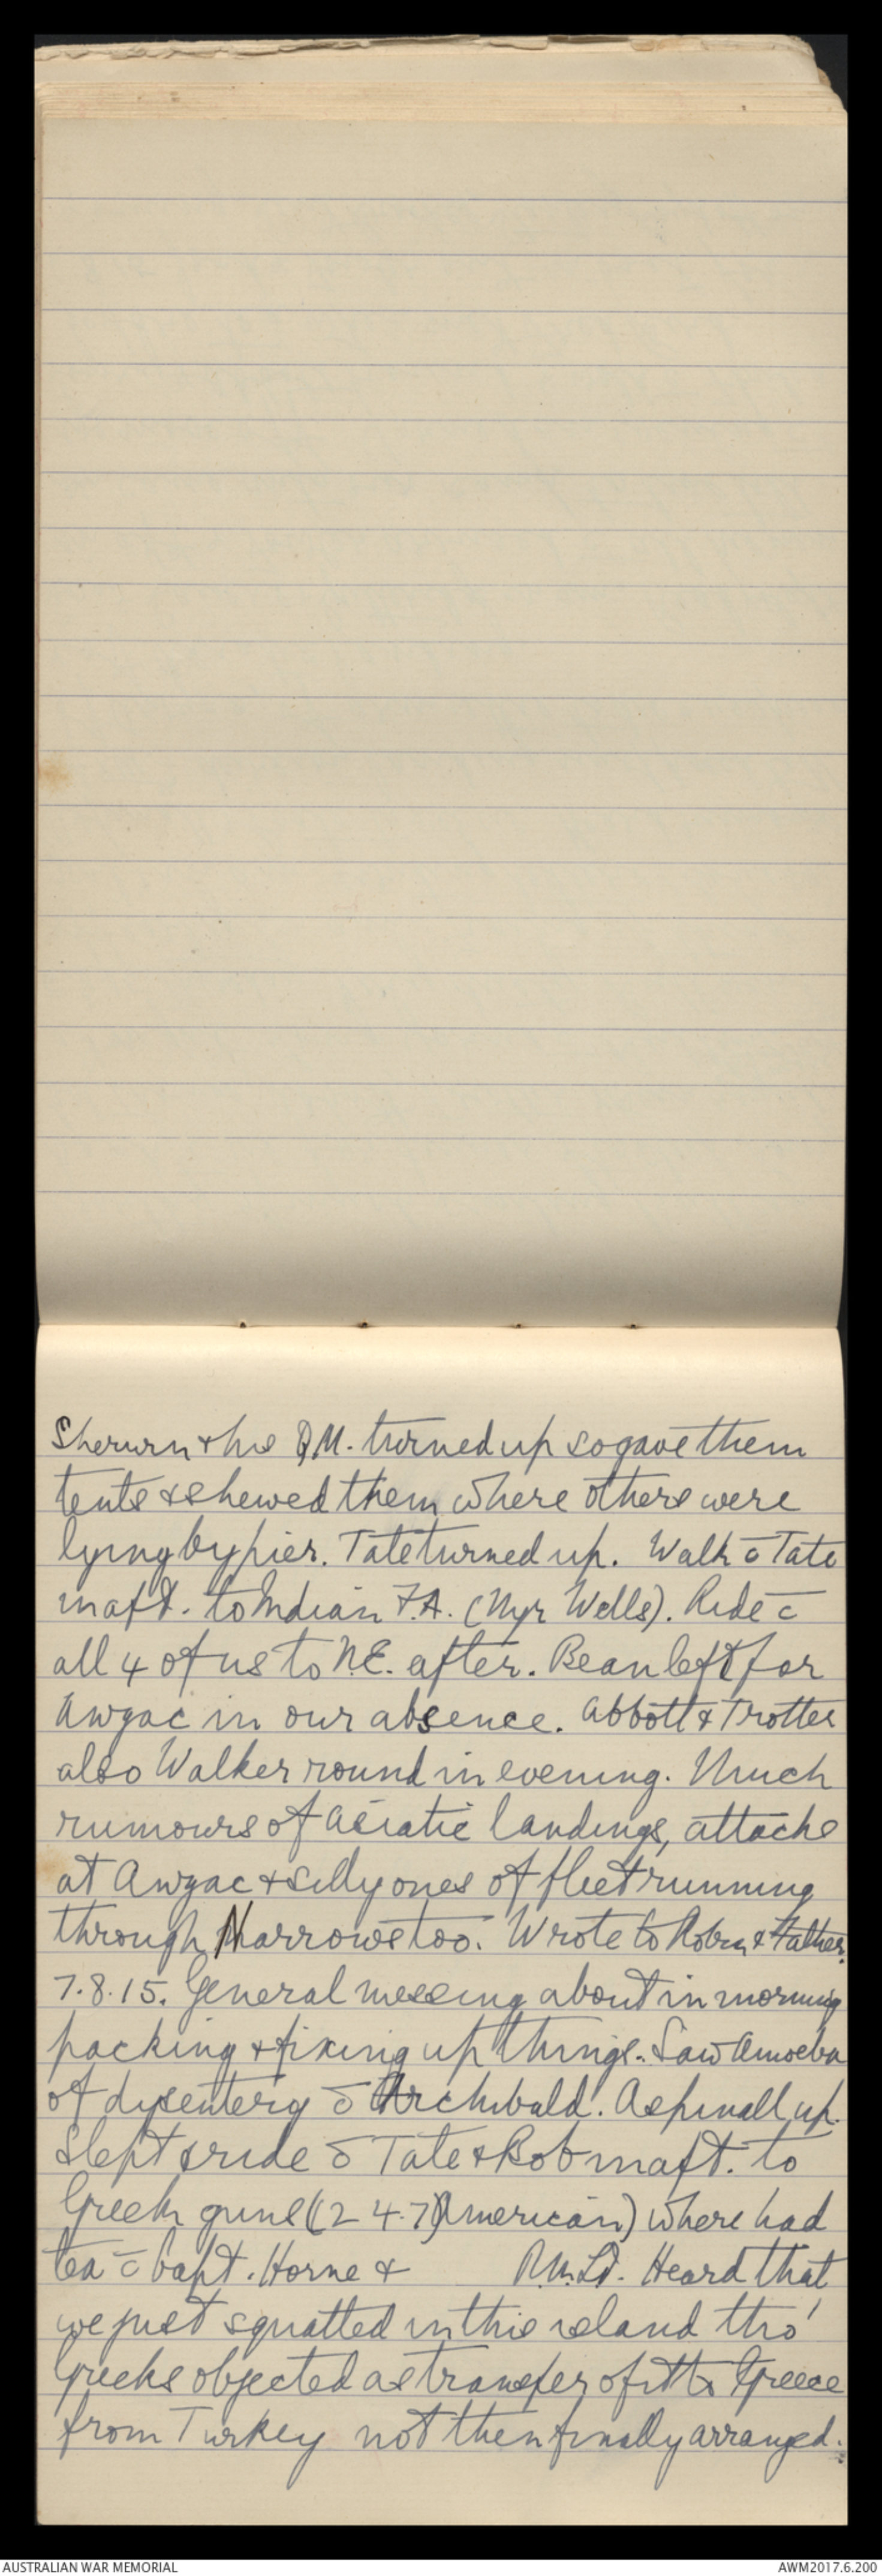 Sherwin & his Q.M. turned up so gave them
tents & shewed them where others were
lying by pier. Tate turned up. Walk c̄ Tate
in aft. to Indian F.A. (Myr Wells). Ride c̄
all 4 of us to N.E. after. Bean left for
Anzac in our absence. Abbott & Trotter
also Walker round in evening. Much
rumours of Asiatic landings, attacks
at Anzac & silly ones of fleet running
through Narrows too. Wrote to Robin & Father.
7.8.15. General messing about in morning
packing & fixing up things. Saw Amoeba
of dysentery c̄ Archibald. Aspinall up.
Slept & ride c̄ Tate & Bob in aft. to
Greek guns (2 4.7 American) where had
tea c̄ Capt. Horne & R.M.L.I. Heard that
we just squatted in this island tho'
Greeks objected as transfer of it to Greece
from Turkey not then finally arranged.
AUSTRALIAN WAR MEMORIAL
AWM2017.6.200